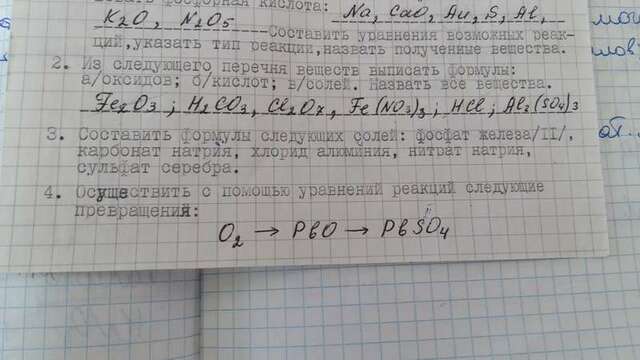 фосфорная кислота: Na, CaO, Au, S, Al,
K2O, N2O5 Составить уравнения возможных реак-
ций,указать тип реакции,назвать полученные вещества.
2. Из следующего перечня веществ выписать формулы:
а/оксидов; б/кислот; в/солей. Назвать все вещества.
Fe2O3; H2CO3, Cl2O7, Fe(NO3)3; HCl; Al2(SO4)3
3. Составить формулы следующих солей: фосфат железа/II/,
карбонат натрия, хлорид алюминия, нитрат натрия,
сульфат серебра.
4. Осуществить с помощью уравнений реакций следующие
превращения:
O2 → PbO → PbSO4